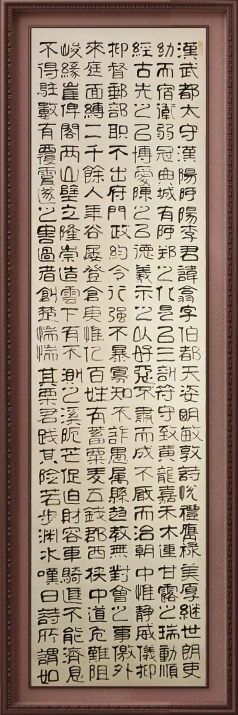 漢武都太守漢陽阿陽李君諱翕字伯都天姿明敏敦詩悅禮膺祿美厚繼世郎吏
幼而宿衛弱冠典城有阿鄭之化是以三剖符守致黃龍嘉禾木連甘露之瑞動順
經古先之以博愛陳之以德義示之以好惡不肅而成不嚴而治朝中惟靜威儀抑
抑督郵部職不出府門政約令行強不暴寡知不詐愚屬縣趍教無對會之事徼外
來庭面縛二千餘人年谷屢登倉庾惟億百姓有蓄粟麥五錢郡西狹中道危難阻
峻緣崖俾閣兩山壁立隆崇造雲下有不測之溪阨芒促迫財容車騎進不能濟息
不得駐數有覆霣隧之害過者創楚惴惴其栗君踐其險若涉淵水嘆曰詩所謂如